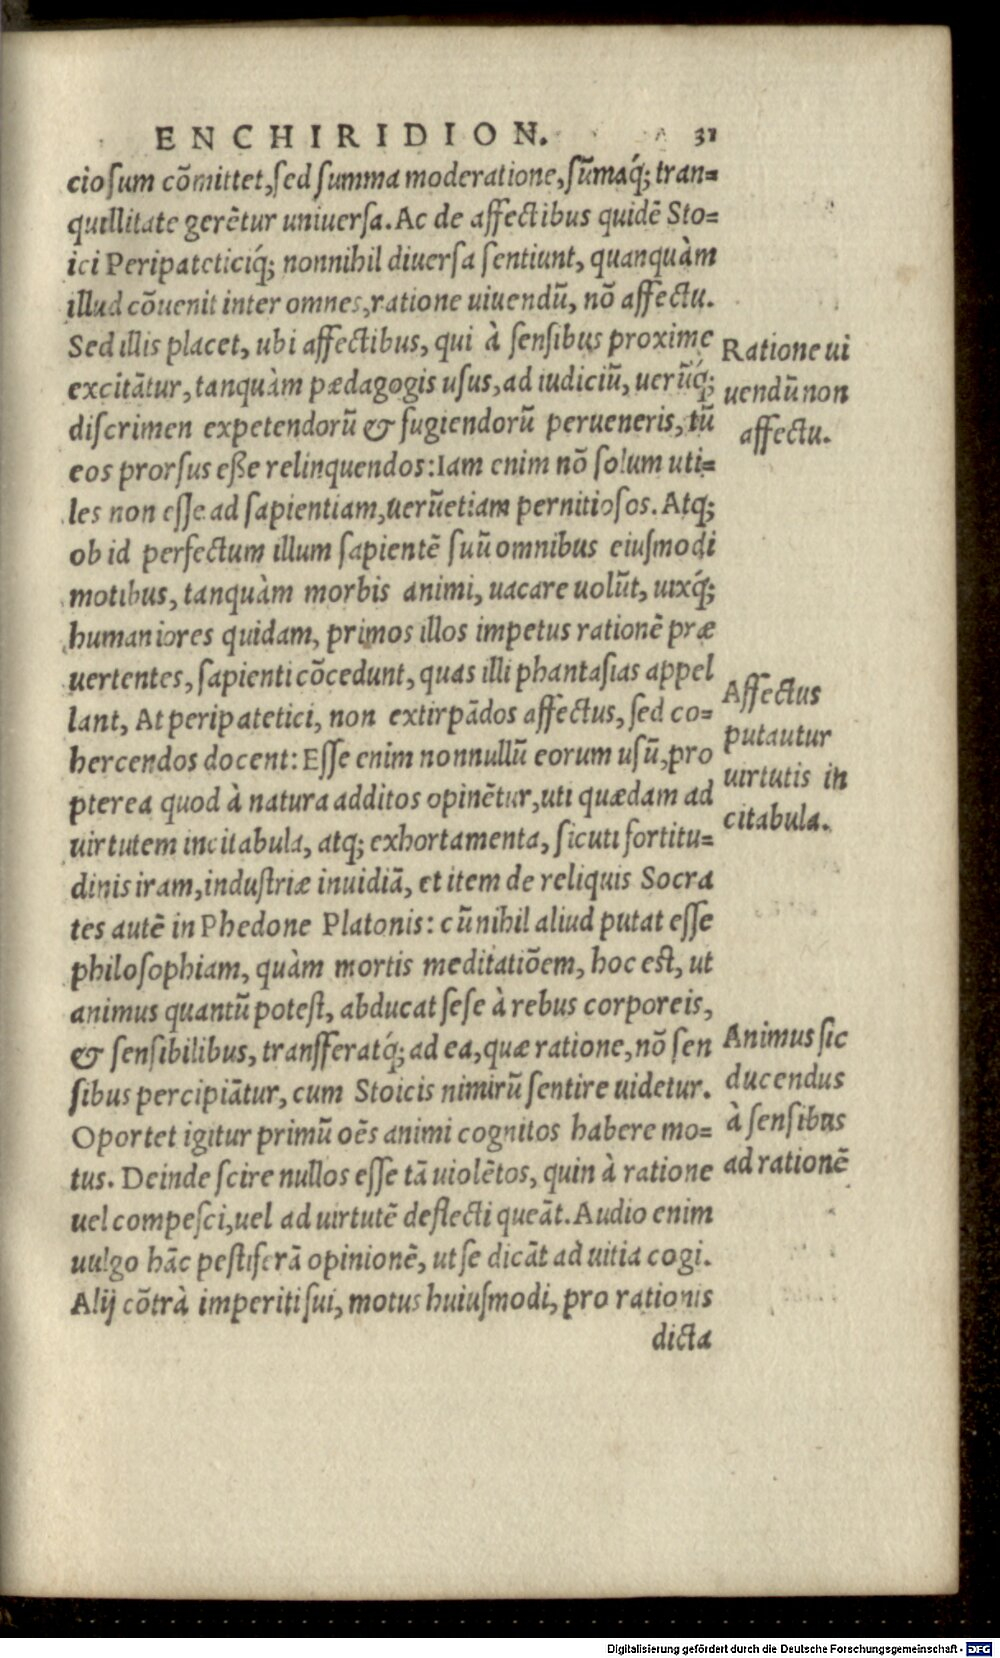 ENCHIRIDION. 31
ciosum cõmittet, sed summa moderatione, sũmaq́; tran=
quillitate gerẽtur uniuersa. Ac de affectibus quidẽ Sto=
ici Peripateticiq́; nonnihil diuersa sentiunt, quanquàm
illud cõuenit inter omnes, ratione uiuendũ, nõ affectu.
Sed illis placet, ubi affectibus, qui à sensibus proxime
excitãtur, tanquàm pædagogis usus, ad iudiciũ, uerũq́;
discrimen expetendorũ & fugiendorũ perueneris, tũ
eos prorsus eße relinquendos: Iam enim nõ solum uti=
les non esse ad sapientiam, uerũetiam pernitiosos. Atq;
ob id perfectum illum sapientẽ suũ omnibus eiusmodi
motibus, tanquàm morbis animi, uacare uolũt, uixq́;
humaniores quidam, primos illos impetus rationẽ præ
uertentes, sapienti cõcedunt, quas illi phantasias appel
lant, At peripatetici, non extirpãdos affectus, sed co=
hercendos docent: Esse enim nonnullũ eorum usũ, pro
pterea quod à natura additos opinẽtur, uti quædam ad
uirtutem incitabula, atq; exhortamenta, sicuti fortitu=
dinis iram, industriæ inuidiã, et item de reliquis Socra
tes autẽ in Phedone Platonis: cũ nihil aliud putat esse
philosophiam, quàm mortis meditatiõem, hoc est, ut
animus quantũ potest, abducat sese à rebus corporeis,
& sensibilibus, transferatq́; ad ea, quæ ratione, nõ sen
sibus percipiãtur, cum Stoicis nimirũ sentire uidetur.
Oportet igitur primũ oẽs animi cognitos habere mo=
tus. Deinde scire nullos esse tã uiolẽtos, quin à ratione
uel compesci, uel ad uirtutẽ deflecti queãt. Audio enim
uulgo hãc pestiferã opinionẽ, ut se dicãt ad uitia cogi.
Alij cõtrà imperiti sui, motus huiusmodi, pro rationis
dicta
Ratione ui
uendũ non
affectu.
Affectus
putautur
uirtutis in
citabula.
Animus sic
ducendus
à sensibus
ad rationẽ
Digitalisierung gefördert durch die Deutsche Forschungsgemeinschaft - DFG